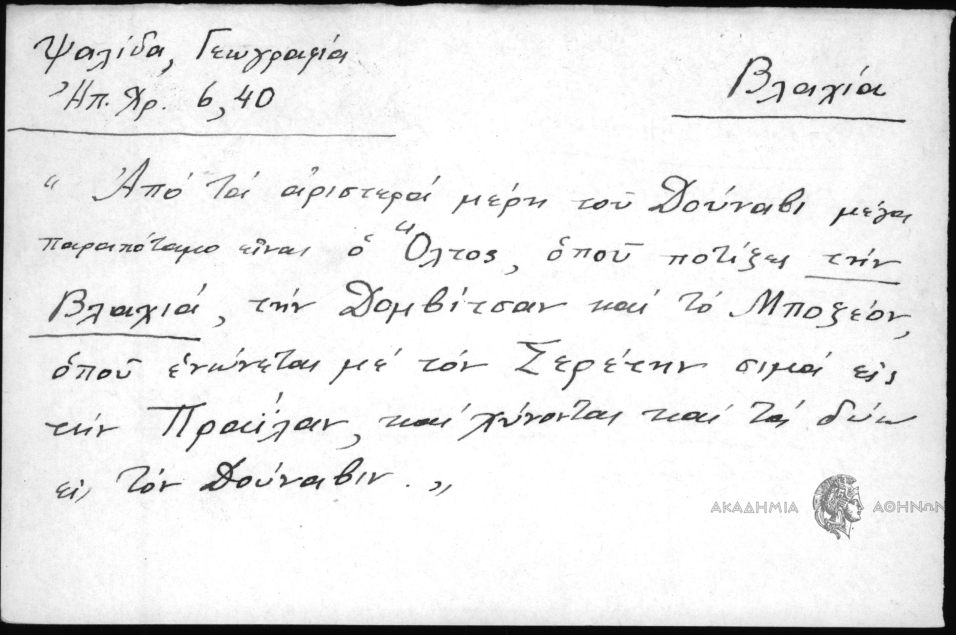 Ψαλίδα, Γεωγραφία
Ἠπ. Χρ. 6,40
Βλαχία
“ Ἀπό τά ἀριστερά μέρη τοῦ Δούναβι μέγα
παραπόταμο εἶναι ὁ Ὄλτος, ὁποῦ ποτίζει τήν
Βλαχιά, τήν Δομβίτσαν καί τό Μποζέον,
ὁποῦ ἑνώνεται μέ τόν Σερέτην σιμά εἰς
τήν Πραΐλαν, καί χύνονται καί τά δύω
εἰς τόν Δούναβιν. „
ΑΚΑΔΗΜΙΑ ΑΘΗΝΩΝ